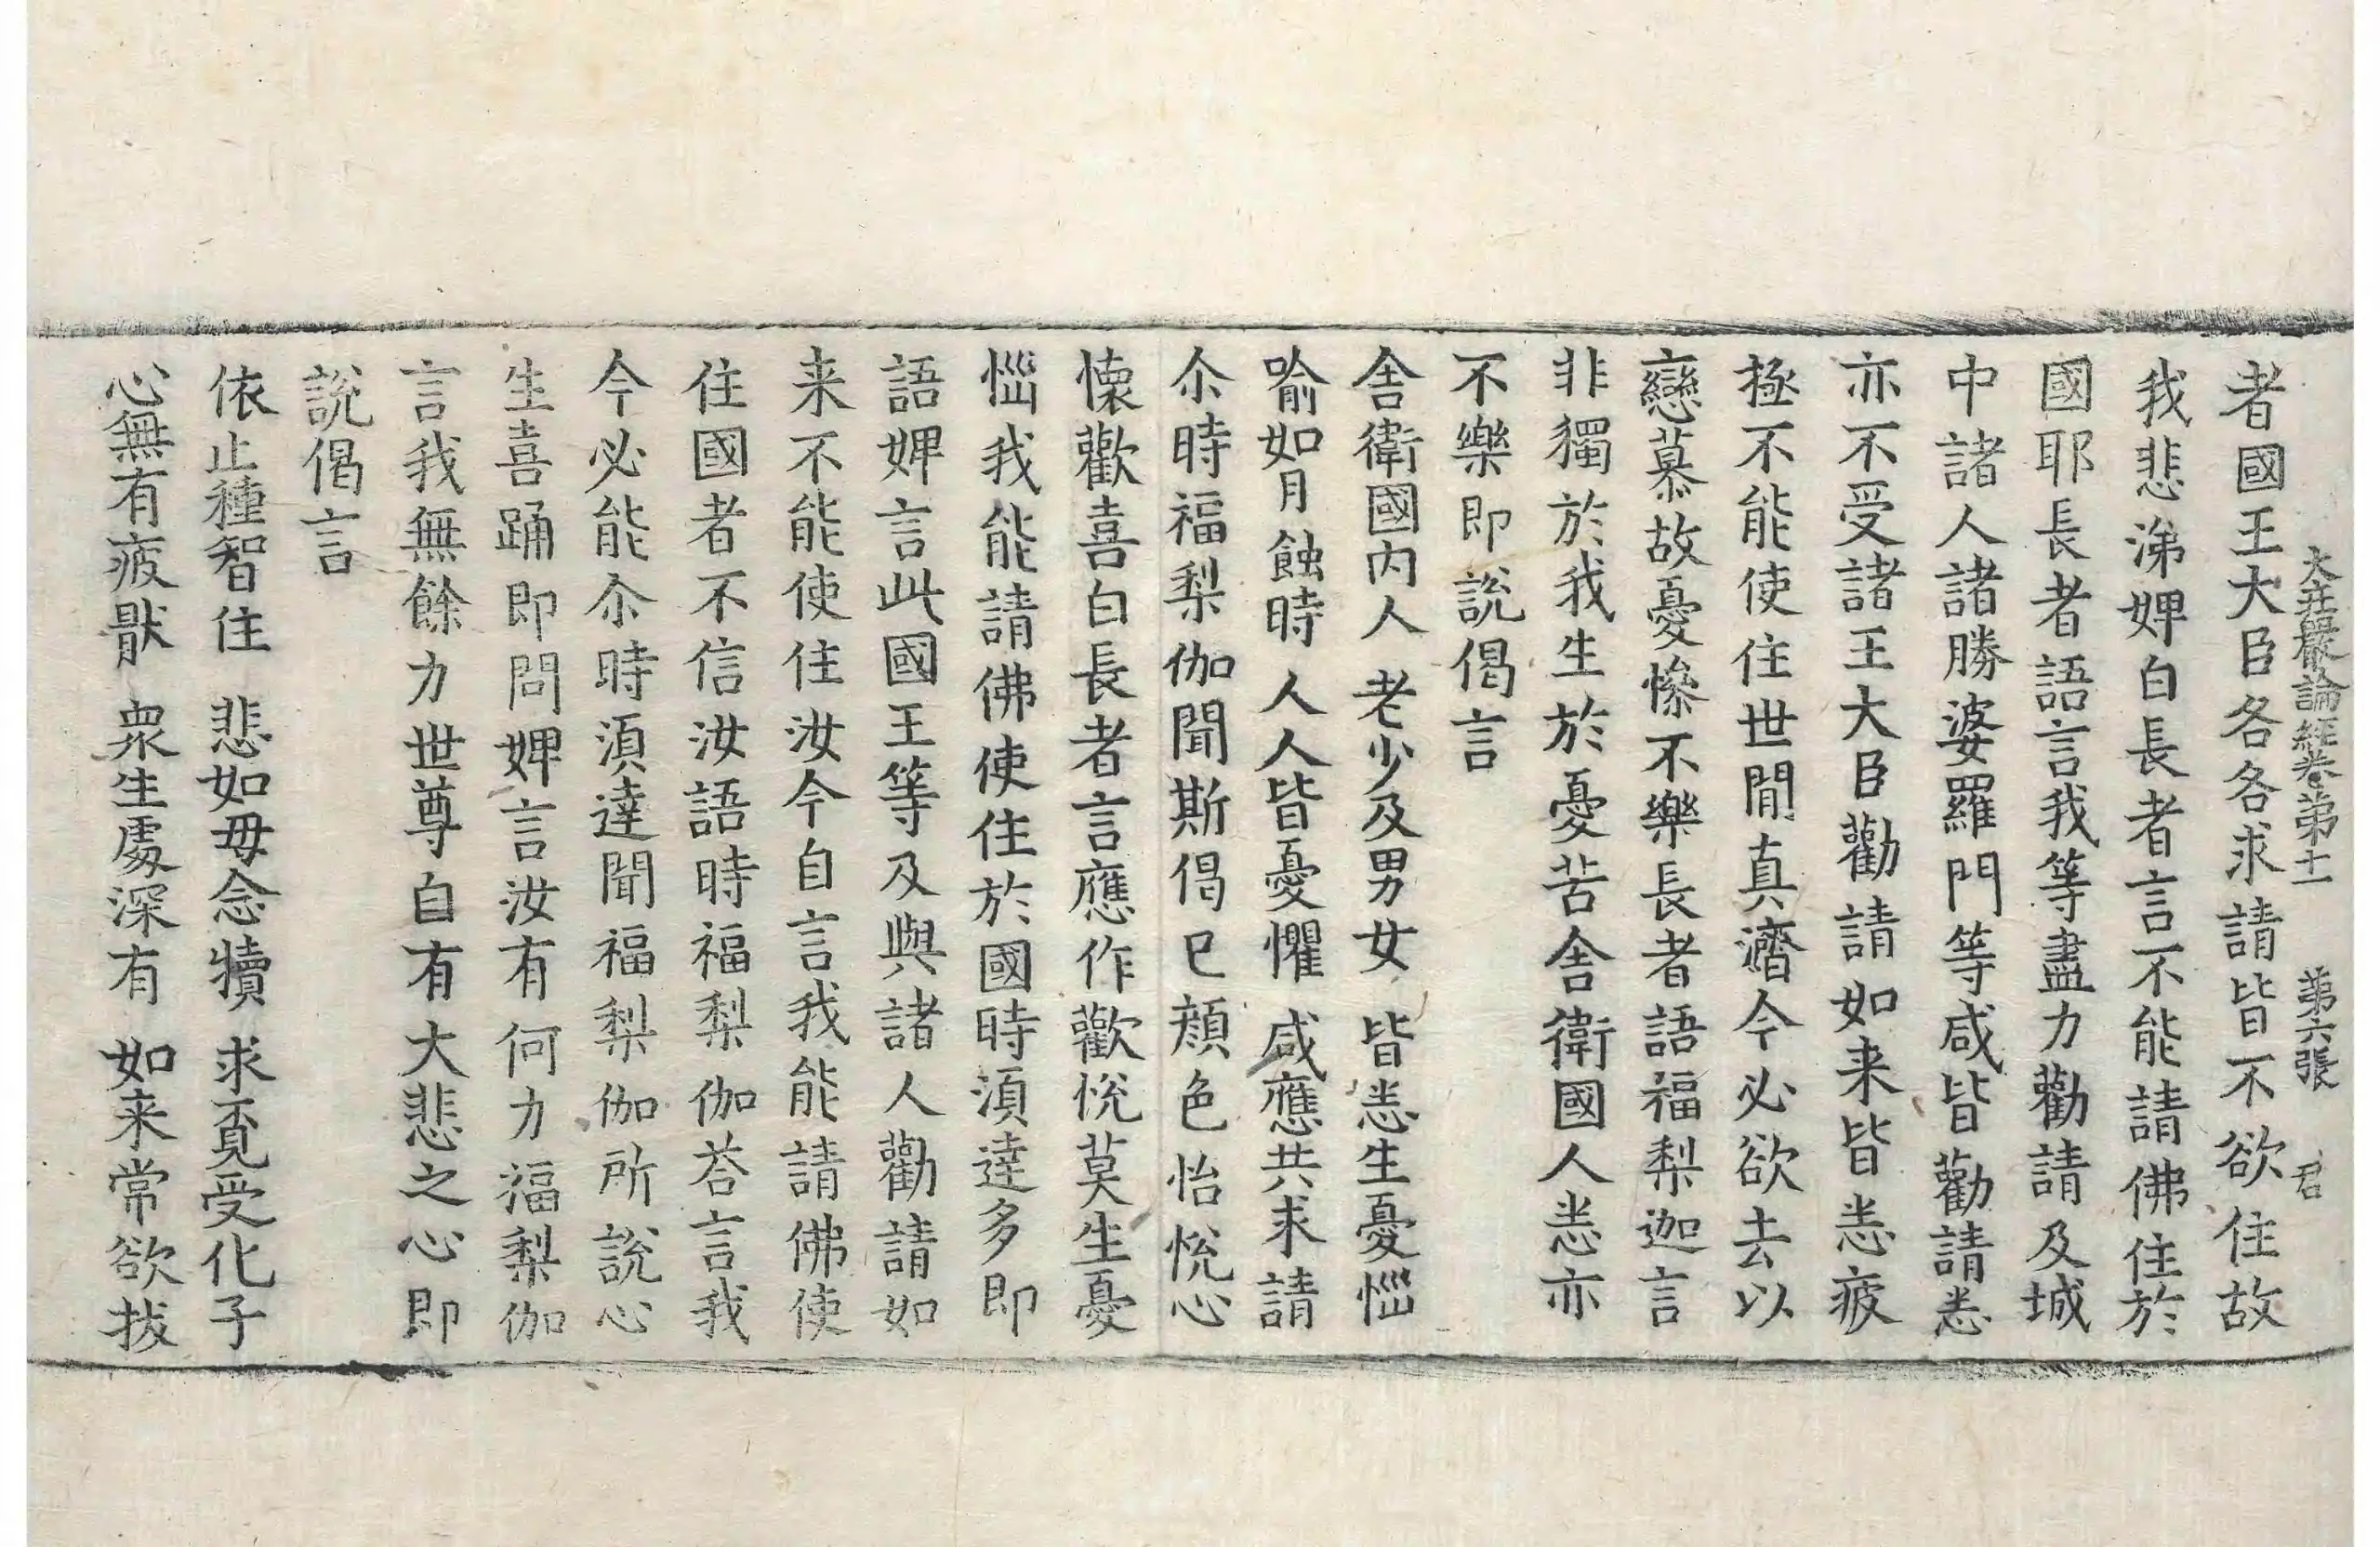 大莊嚴論經卷第十二 第六張 君
者國王大臣各各求請皆不欲住故
我悲涕婢白長者言不能請佛住於
國耶長者語言我等盡力勸請及城
中諸人諸勝婆羅門等咸皆勸請悉
亦不受諸王大臣勸請如来皆悉疲
極不能使住世間真濟今必欲去以
戀慕故憂慘不樂長者語福梨迦言
非獨於我生於憂苦舍衛國人悉亦
不樂即說偈言
舍衛國內人 老少及男女 皆悉生憂惱
喻如月蝕時 人人皆憂懼 咸應共求請
尒時福梨伽聞斯偈已顔色怡悅心
懷歡喜白長者言應作歡悅莫生憂
惱我能請佛使住於國時湏達多即
語婢言此國王等及與諸人勸請如
来不能使住汝今自言我能請佛使
住國者不信汝語時福梨伽荅言我
今必能尒時湏達聞福梨伽所說心
生喜踊即問婢言汝有何力福梨伽
言我無餘力世尊自有大悲之心即
說偈言
依止種智住 悲如母念犢 求覓受化子
心無有疲猒 衆生處深有 如来常欲拔